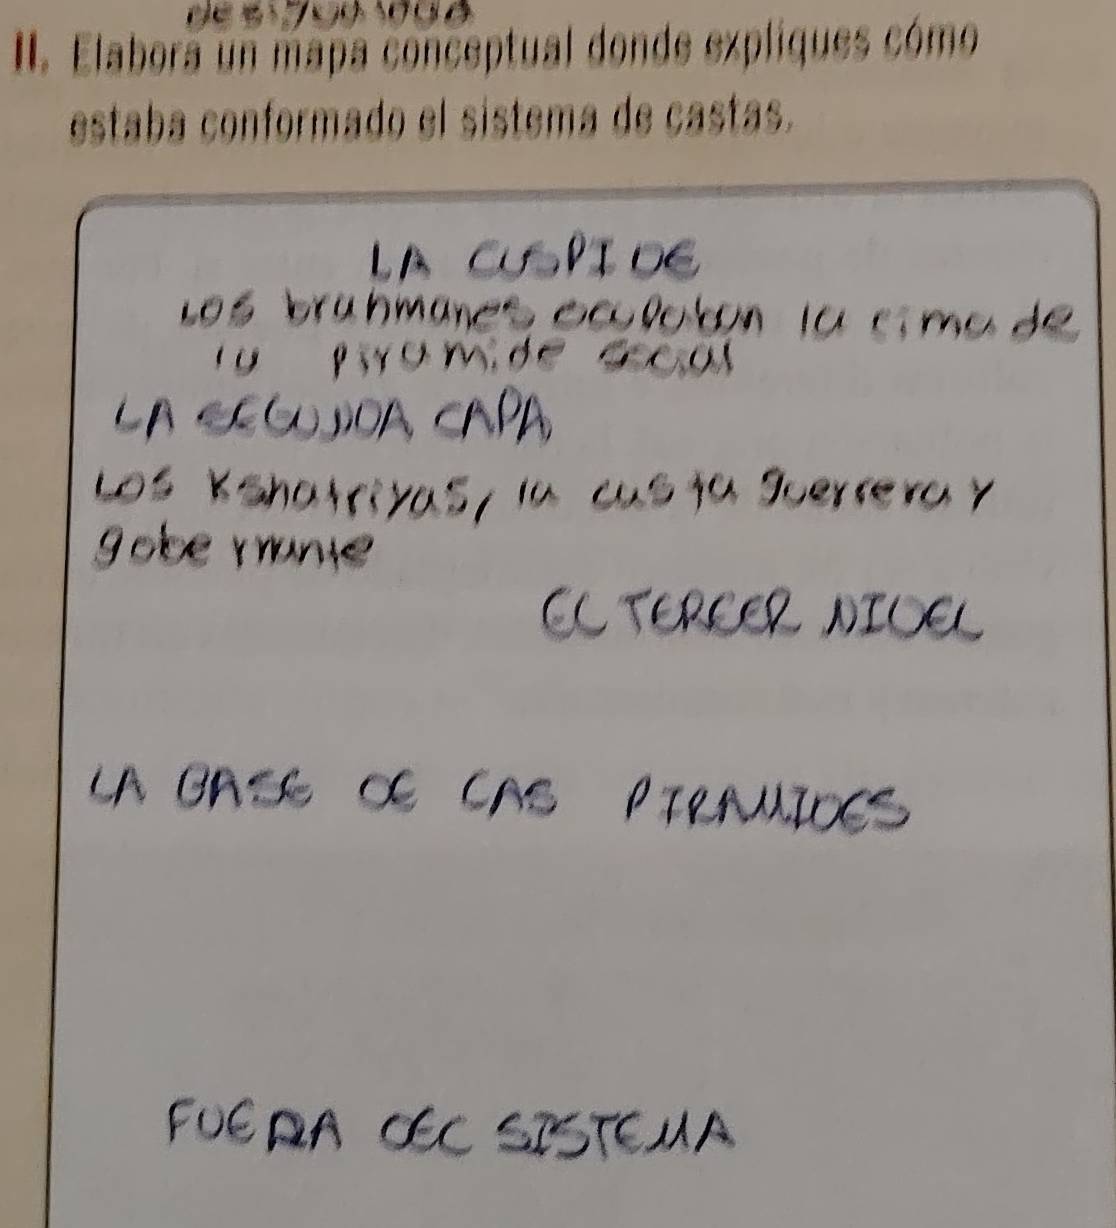 desigualdad
II. Elabora un mapa conceptual donde expliques cómo
estaba conformado el sistema de castas.
LA CUSPIDE
Los brahmanes ocupaban la cima de
la piramide social
LA SEGUNDA CAPA
Los Kshatriyas, la casta guerrera y
gobernante
EL TERCER NIVEL
LA BASE DE LAS PIRAMIDES
FUERA DEL SISTEMA